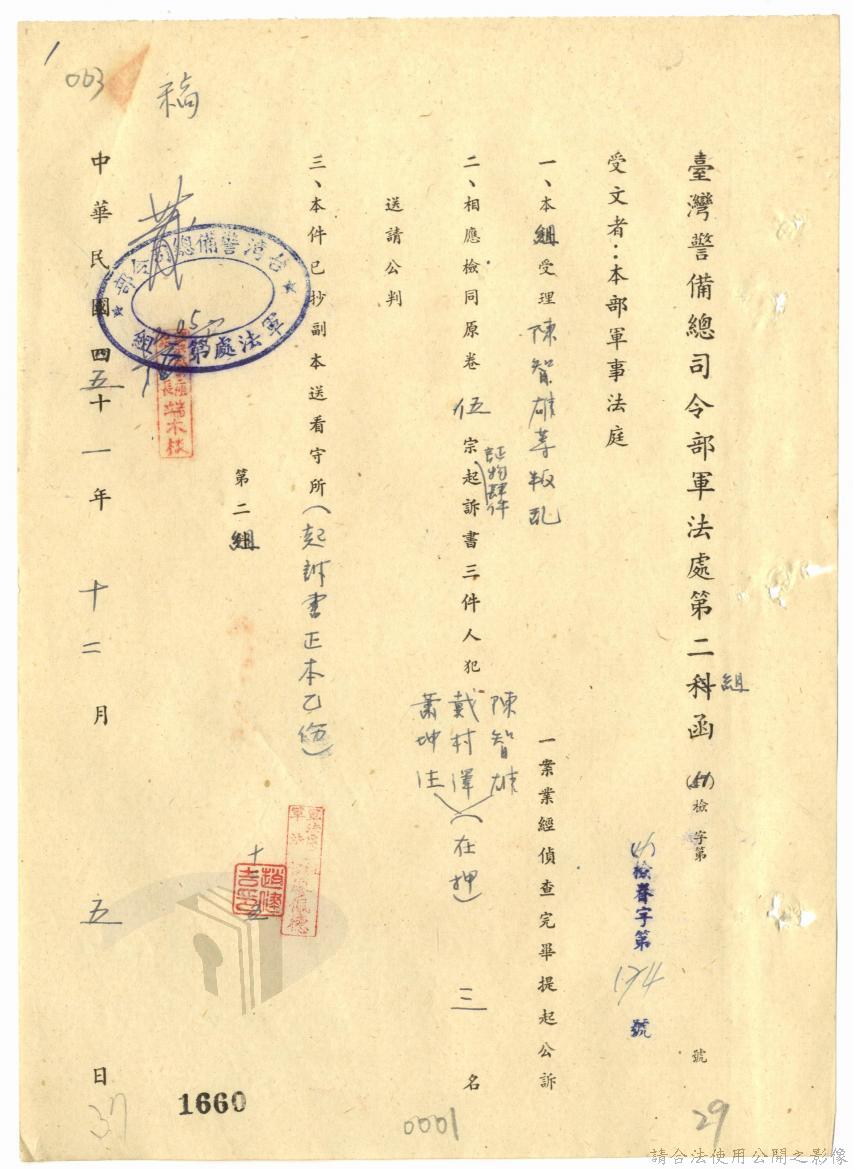 臺灣警備總司令部軍法處第二科組函
(51)檢字第 號
(51)檢
字第
號
受文者：本部軍事法庭
一、本組受理陳智雄等叛乱一案業經偵查完畢提起公訴
二、相應檢同原卷伍宗起訴書三件人犯
証物肆件
陳智雄
戴村澤
蕭坤旺
（在押）三名
送請公判
三、本件已抄副本送看守所（起訴書正本乙份）
第二組
十二
五
趙偉
台灣警備總司令部
軍法處第二組
端木棪
中華民國五十一年十二月五日
稿
1
003
1660
0001
29
37
請合法使用公開之影像